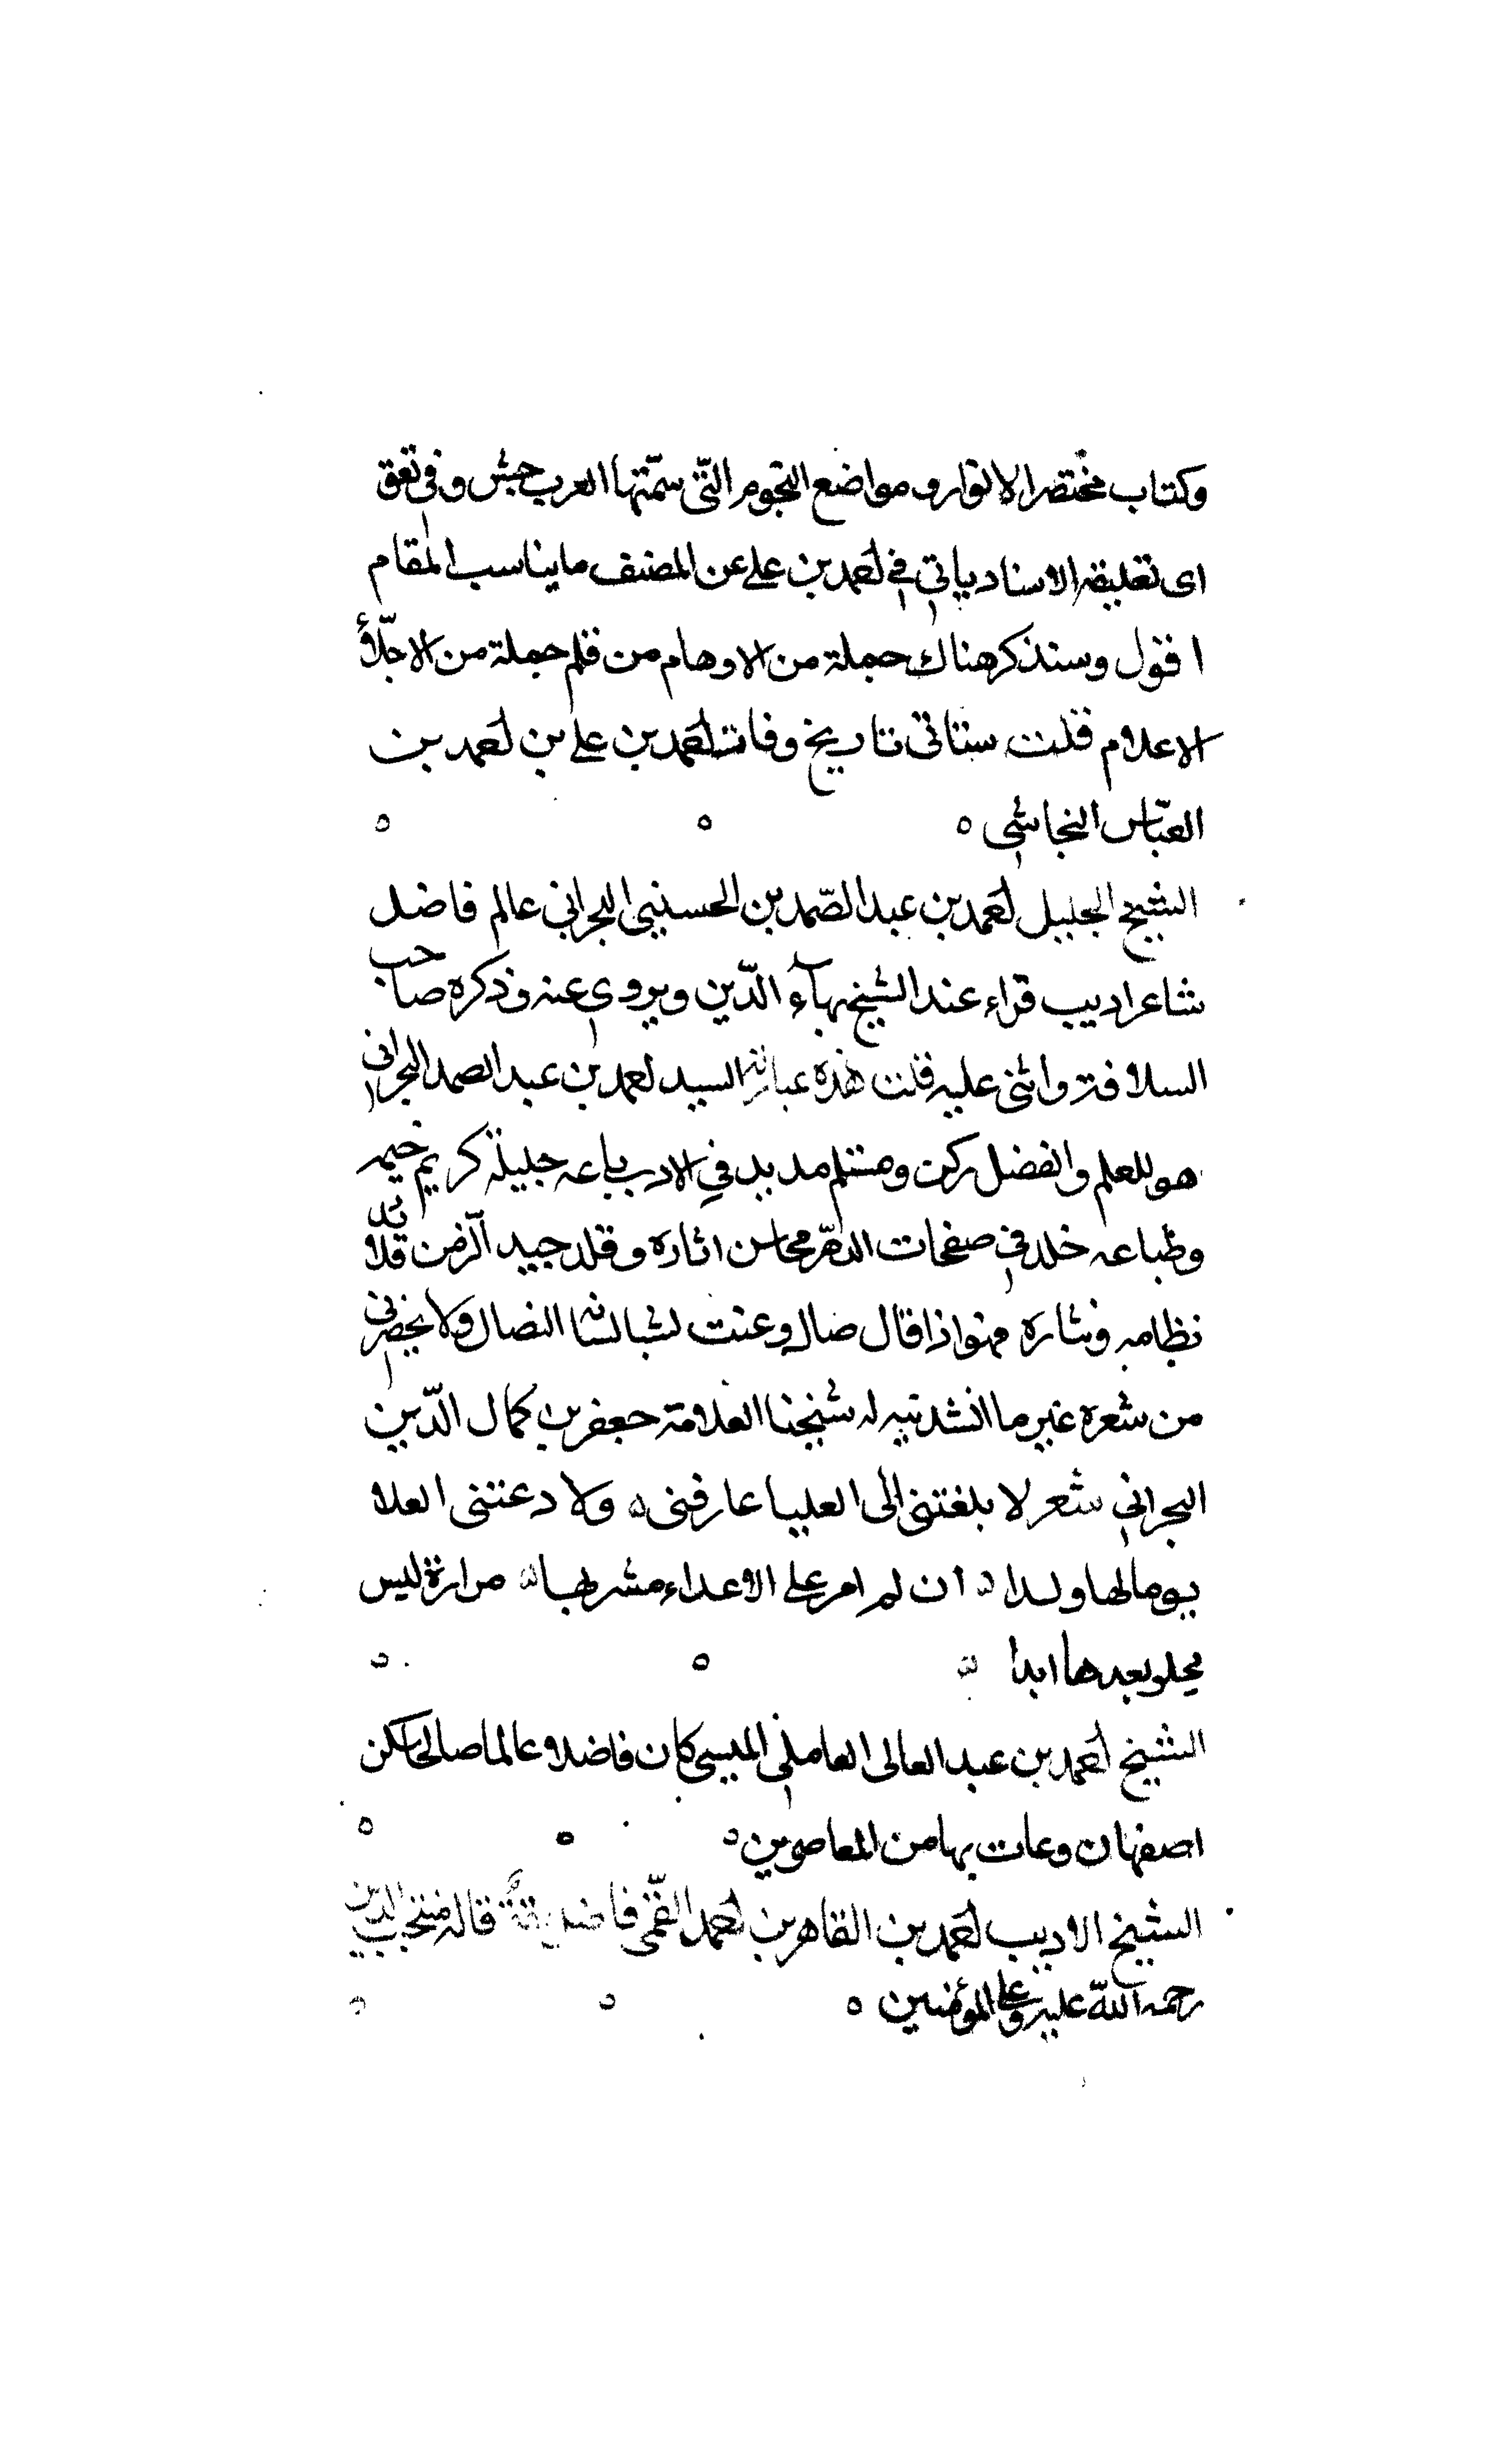 وكتاب مختصر الانوار ومواضع النجوم التّى سمّتها العرب جش وفى تعق
اى تعليقة الاستاد ياتى فى احمد بن على عن المصنف ما يناسب المقام
اقول وسنذكر هناك جملة من الاوهام من قلم جملة من الاجلّاء
الاعلام قلت ستاتى تاريخ وفات احمد بن على بن احمد بن
العبّاس النجاشى ه ه ه
الشيخ الجليل احمد بن عبد الصّمد بن الحسينى البحرانى عالم فاضل
شاعر اديب قراء عند الشيخ بهآء الدّين ويروى عنه وذكره صاحب
السلافة واثنى عليه قلت هذه عبارته السيد احمد بن عبد الصمد البحرانى
هو للعلم والفضل ركن ومستلم مديد فى الادب باعه جليلة كريم خيمه
وطباعه خلد فى صفحات الدهر محاسن اثاره وقلد جيد الزمن قلائد
نظامه ونثاره فهو اذا قال صال وعنت لشبا لسانه النصال ولا يحضرنى
من شعره غير ما انشدنيه له شيخنا العلامة جعفر بن كمال الدّين
البحرانى شعر لا بلغتنى الى العليا عارفنى ه ولا دعتنى العلا
يوما لها ولدا ه ان لم امر على الاعداء مشربها ه مرارة ليس
يحلو بعدها ابدا ه ه ه
الشيخ احمد بن عبد العالى العاملى الميسى كان فاضلا عالما صالحا سكن
اصفهان ومات بها من المعاصرين ه ه ه
الشيخ الاديب احمد بن القاهر بن احمد القمّى فاضل ثقة قاله منتجب الدين
رحمة اللّه عليه وعلى المؤمنين ه ه ه